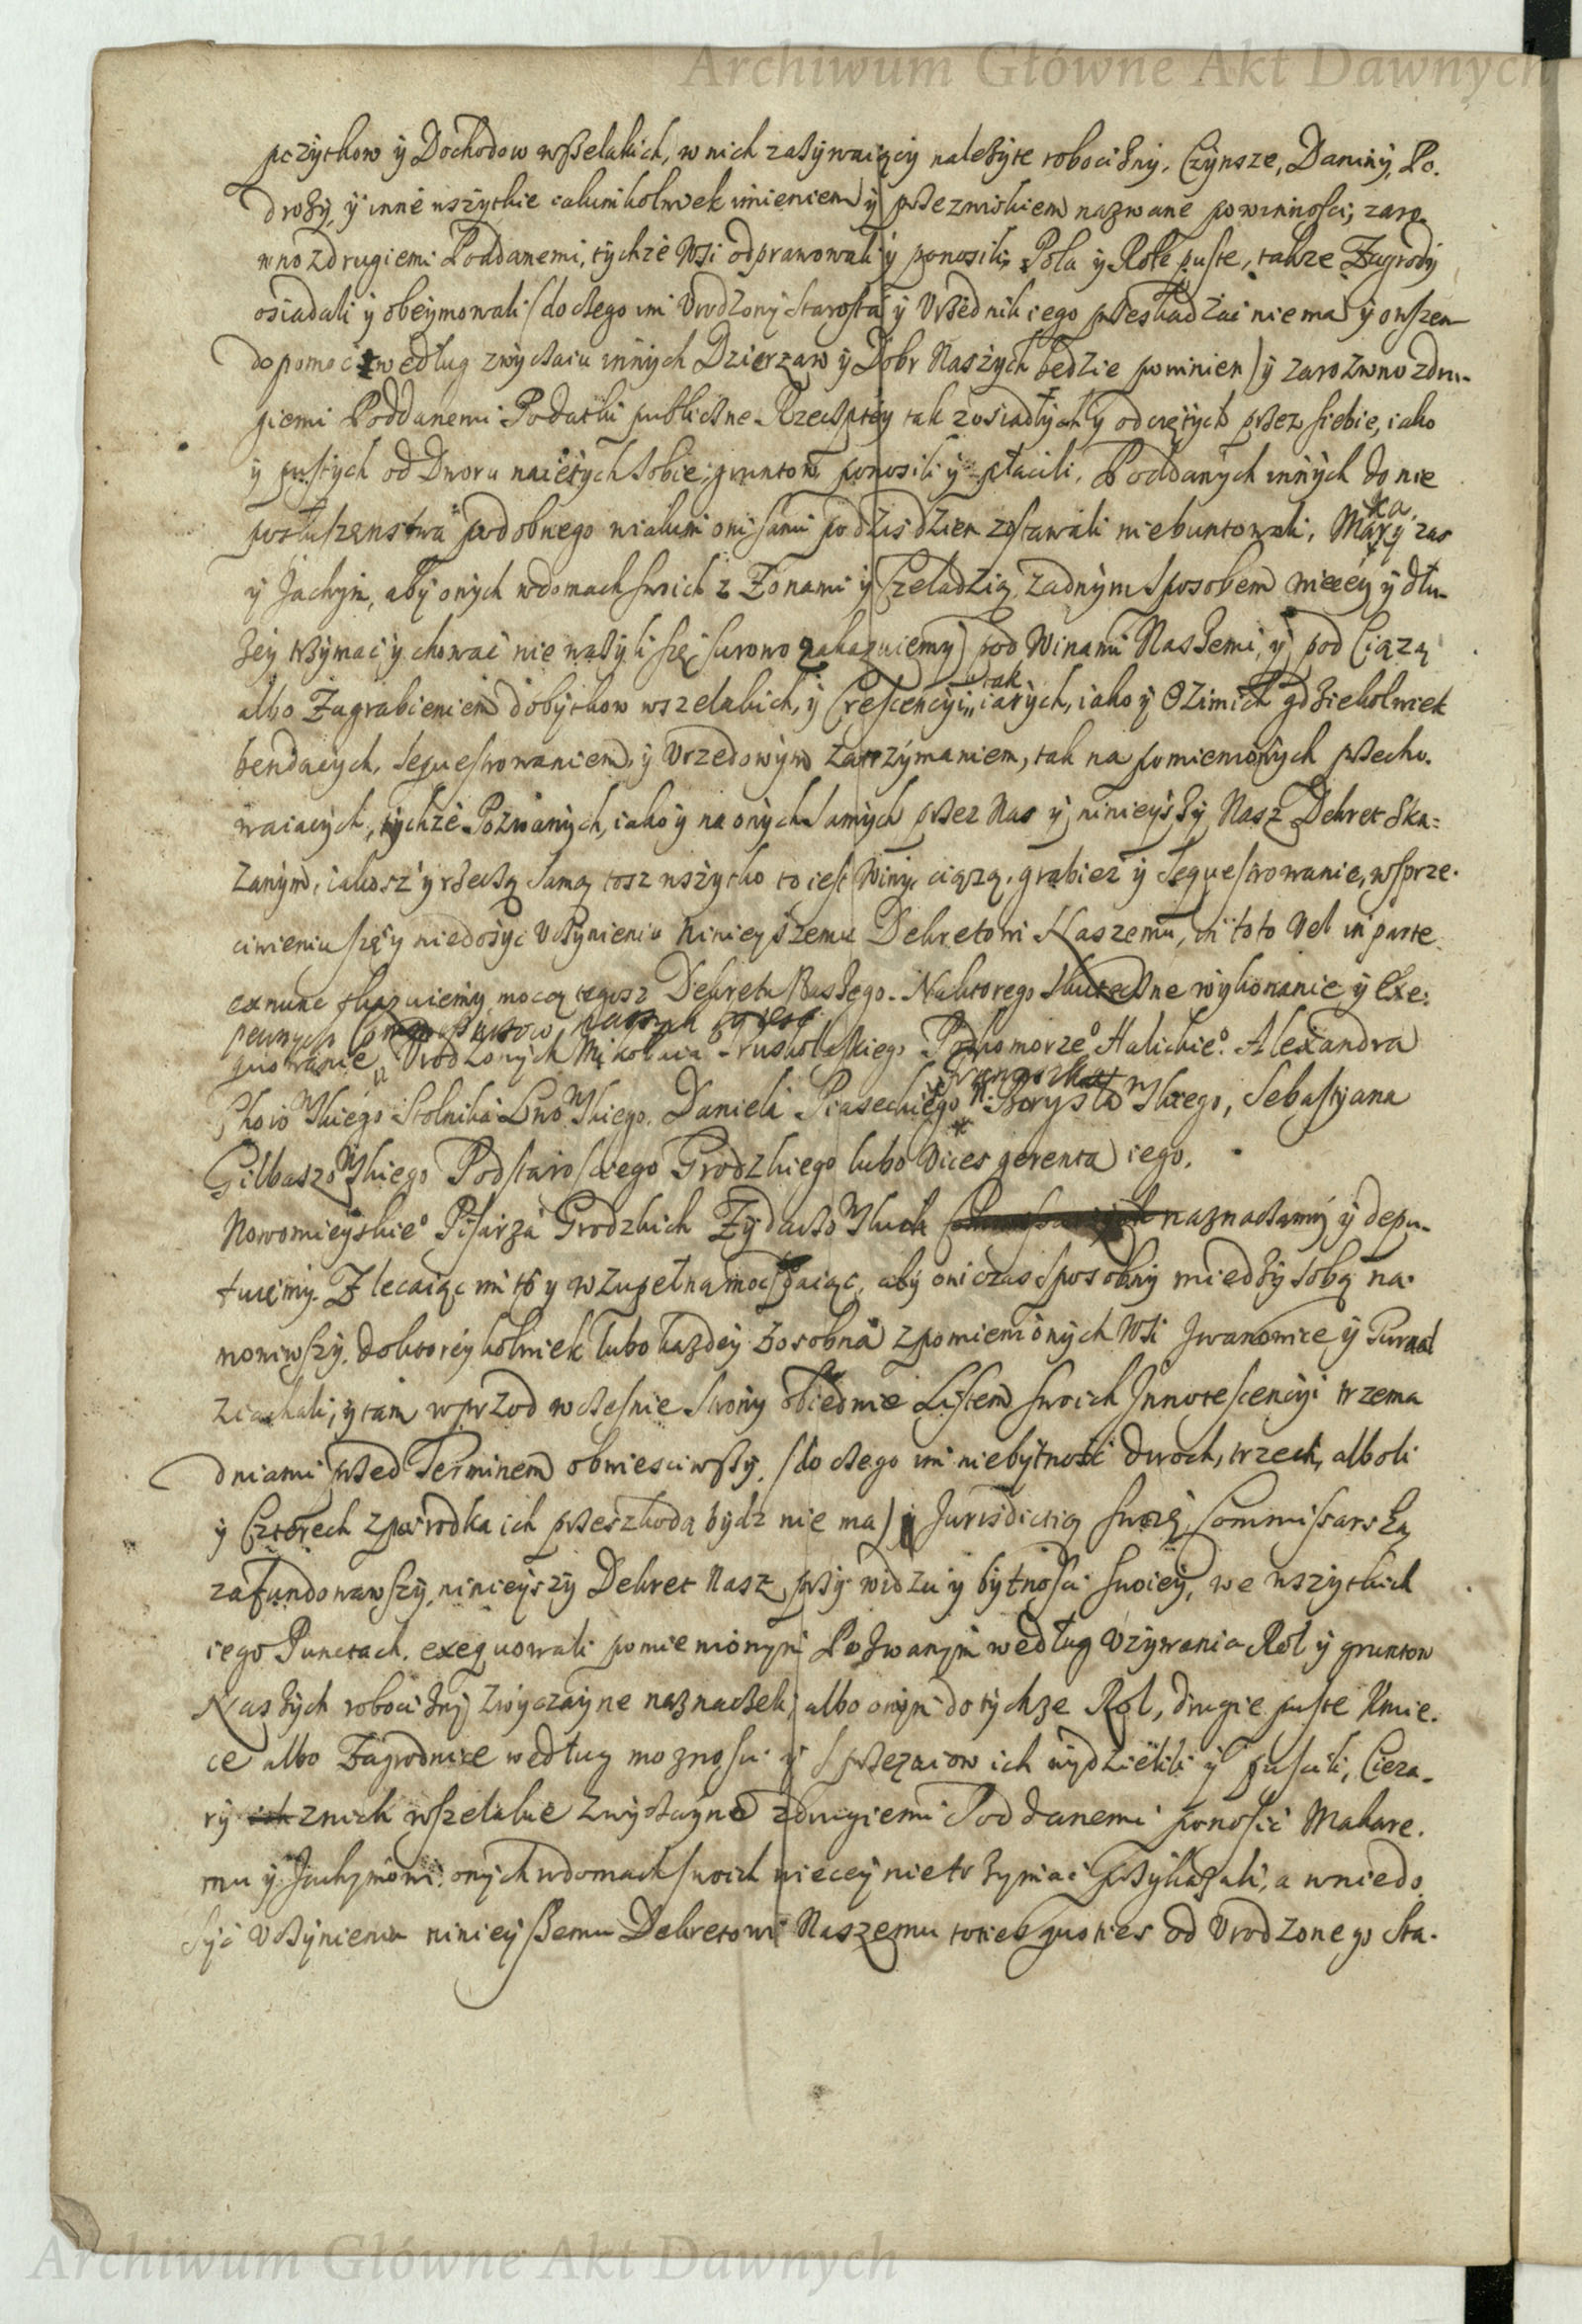 Archiwum Główne Akt Dawnych
pożytkow ÿ Dochodow wszelakich, w nich zażÿwaiącÿ należÿte robociznÿ, Czÿnsze, Daninÿ, Po-
drożÿ, ÿ inné wszÿtkie iakimkolwiek imieniem ÿ przezwiskiem nazwane powinności, zaro-
wno z drugiemi Poddanemi, tÿchże Wsi odprawowali ÿ ponosili, Pola ÿ Role puste, także Zagrodÿ
osiadali ÿ obeÿmowali (do czego im Vrodzonÿ Starosta ÿ Vrzednik iego przeszkadzać nie ma ÿ owszem
dopomoc według zwÿczaiu innÿch Dzierzaw ÿ Dobr Naszÿch bedzie powinien) ÿ zarowno z dru-
giemi Poddanemi Podatki publiczne Rzeczptéÿ tak z osiadłÿch ÿ odciętÿch przez siebie, iako
ÿ pustÿch od Dworu naiętÿch sobie gruntow ponosili ÿ płacili, Poddanÿch innÿch do nie
posłuszenstwa podobnego w iakim oni sami po dziś dzien zostawali nie buntowali, Makarÿ zas
ÿ Jachÿm, abÿ onÿch w domach swoich z Zonami ÿ Czeladzią zadnÿm sposobem wiecéÿ ÿ dłu-
żeÿ trzÿmać ÿ chować nie ważÿli się surowo zakazuiemÿ pod Winami Naszemi, ÿ pod Ciązą
albo Zagrabieniem dobÿtkow wszelakich, ÿ Crescencÿi tak iarÿch, iako ÿ Ozimich gdziekolwiek
bendącÿch, sequestrowaniem ÿ Vrzedowÿm zatrzÿmaniem, tak na pomienionÿch przecho-
waiącÿch, tÿchże Pozwanÿch, iako ÿ na onÿch samÿch przez Nas ÿ ninieÿszÿ Nasz Dekret ska-
zanÿm, iakosz ÿ rzeczą samą tosz wszÿtko to iest Winÿ, ciązą, grabież ÿ sequestrowanie, w sprze-
ciwieniu się ÿ niedosÿć vczÿnieniu Ninieÿszemu Dekretowi Naszemu, in toto Vel in parte
ex nunc skazuiemÿ mocą tegosz Dekretu Naszego. Na ktorego skuteczne wÿkonanie ÿ Exe-
pewnych Commissarzow naszych to iest
quowanie Vrodzonÿch Mikołaia Podkomorzeº Halickieº. Alexandra
Stolnika Lwowskiego, Daniela Piaseckiego Franciszka N. skiego, Sebastÿana
Gilbaszowskiego Podstarosciego Grodzkiego lubo Vices gerenta iego,
Nowomieÿskieº Pisarza Grodzkich Zÿdaczowskich naznaczamÿ ÿ depu-
tuiemÿ. Zlecaiąc im to ÿ w zupełną moc daiąc, abÿ oni czas sposobnÿ miedzÿ sobą na-
mowiwszÿ, do ktoreÿkolwiek lubo kazdeÿ z osobna z pomienionÿch Wsi Jwanowice ÿ
ziachali, ÿ tam wprzod wcześnie stronÿ obiedwie Listem swoich Jnnotescencÿi trzema
dniami przed Terminem obwiesciwszÿ, (do czego im niebÿtność dwoch, trzech, alboli
ÿ Czterech z posrodka ich przeszkodą bÿdz nie ma) ÿ Jurisdictią swoię Commissarską
zafundowawszÿ, ninieÿszÿ Dekret Nasz, przÿ widzu ÿ bÿtności swoieÿ, we wszÿtkich
iego Punctach, exequowali pomienionÿm Pozwanÿm według vzÿwania Rol ÿ gruntow
Naszÿch robociznÿ zwÿczaÿne naznaczeli, albo onÿm do tÿchze Rol, drugie puste Kmie-
ce albo Zagrodnice według moznosci ÿ sprzęzaiow ich wÿdzielili ÿ puscili, Cieza-
rÿ z nich wszelakie zwÿczaÿne z drugiemi Poddanemi ponosić Makare-
mu ÿ Jachÿmowi, onÿch w domach swoich wieceÿ nie trzÿmać przÿkazali, a w niedo-
sÿć vczÿnieniu ninieÿszemu Dekretowi Naszemu toties quoties od Vrodzonego Sta-
Archiwum Główne Akt Dawnych